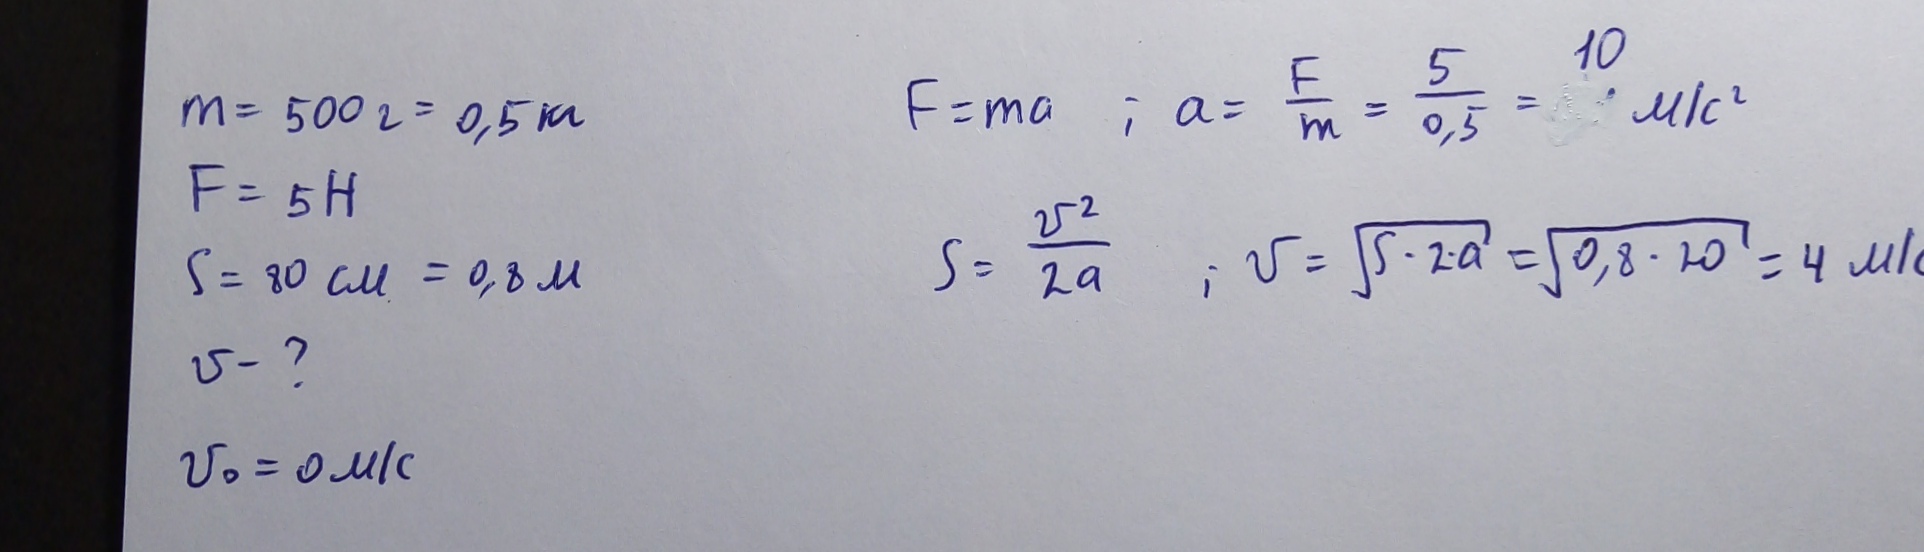 m = 500 г = 0,5 кг
F = 5 Н
S = 80 см = 0,8 м
υ - ?
υ₀ = 0 м/с
F = ma ; a = F/m = 5/0,5 = 10 м/с²
S = υ²/2a ; υ = √(S · 2·a) = √(0,8 · 20) = 4 м/с